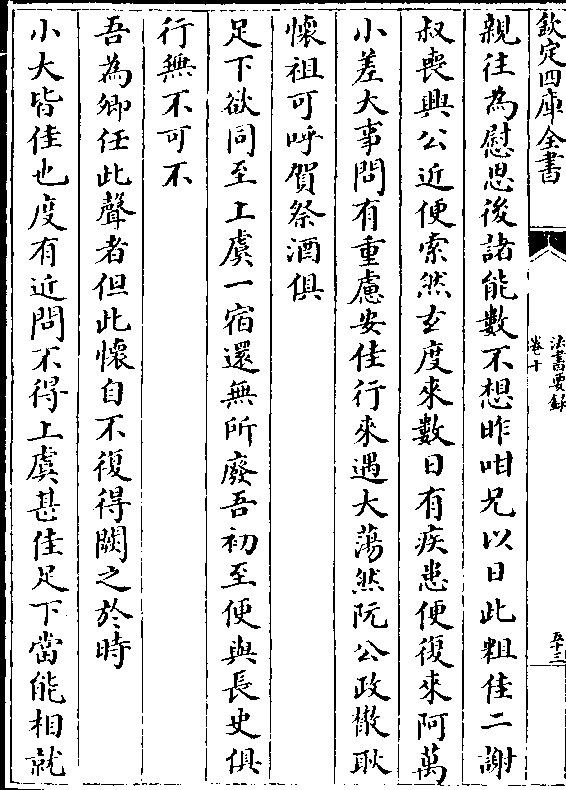 欽定四庫全書
法書要錄
卷十
五十三
親往為慰思後諸能數不想昨呰兄以日此粗佳二謝
叔喪興公近便索然玄度來數日有疾患便復來阿萬
小差大事問有重慮安佳行來遇大蕩然阮公政㯙耿
懷祖可呼賀祭酒俱
足下欲同至上虞一宿還無所廢吾初至便與長史俱
行無不可不
吾為卿任此聲者但此懷自不復得闕之於時
小大皆佳也度有近問不得上虞甚佳足下當能相就